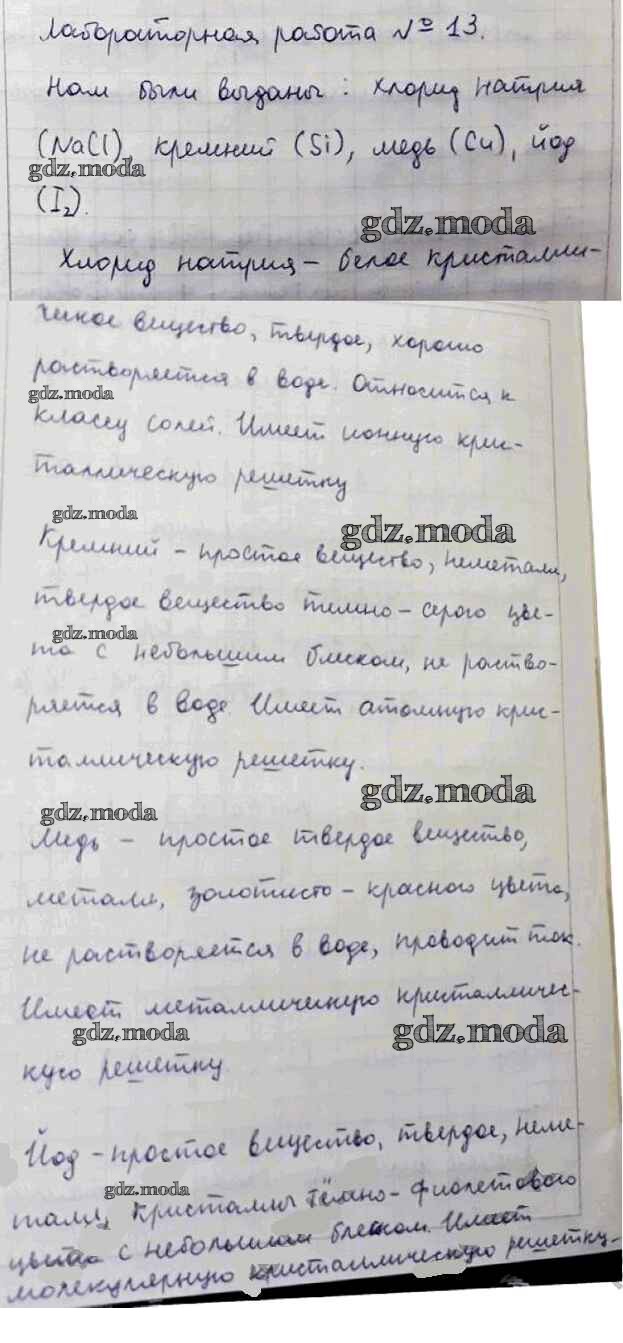 Лабораторная работа № 13.
Нам были выданы: хлорид натрия
(NaCl), кремний (Si), медь (Cu), йод
gdz.moda
(I₂).
gdz.moda
Хлорид натрия – белое кристалли-
ческое вещество, твердое, хорошо
растворяется в воде. Относится к
gdz.moda
классу солей. Имеет ионную крис-
таллическую решетку
gdz.moda
gdz.moda
Кремний – простое вещество, неметалл,
твердое вещество темно-серого цве-
gdz.moda
та с небольшим блеском, не раство-
ряется в воде. Имеет атомную крис-
таллическую решетку.
gdz.moda
gdz.moda
Медь – простое твердое вещество,
металл, золотисто-красного цвета,
не растворяется в воде, проводит ток.
Имеет металлическую кристалличес-
gdz.moda
gdz.moda
кую решетку
Йод – простое вещество, твердое, неме-
gdz.moda
талл, кристаллы тёмно-фиолетового
цвета с небольшим блеском. Имеет
молекулярную кристаллическую решетку.